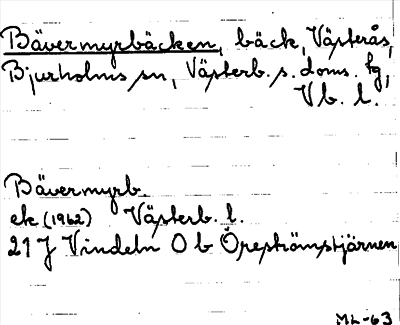 Bävermyrbäcken, bäck, Västerås,
Bjurholms sn, Västerb. s. doms. hg,
Vb. l.
Bävermyrb.
ek (1962) Västerb. l.
21 J Vindeln O b Öreströmstjärnen
ML-63